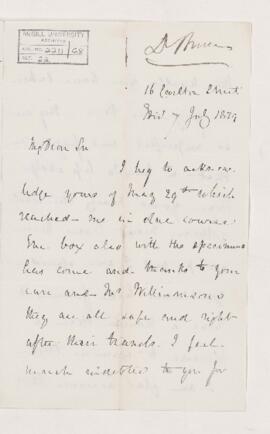 McGILL UNIVERSITY
ARCHIVES
ACC. NO. 2211 / 68
REF. 22
16 Carlton Street
Edin 7 July 1879
My Dear Sir
I beg to acknow
ledge yours of May 29th which
reached me in due course
The box also with the specimens
has come and thanks to your
care and Mr. Williamson's
they are all safe and right
after their travels. I feel
much indebted to you for